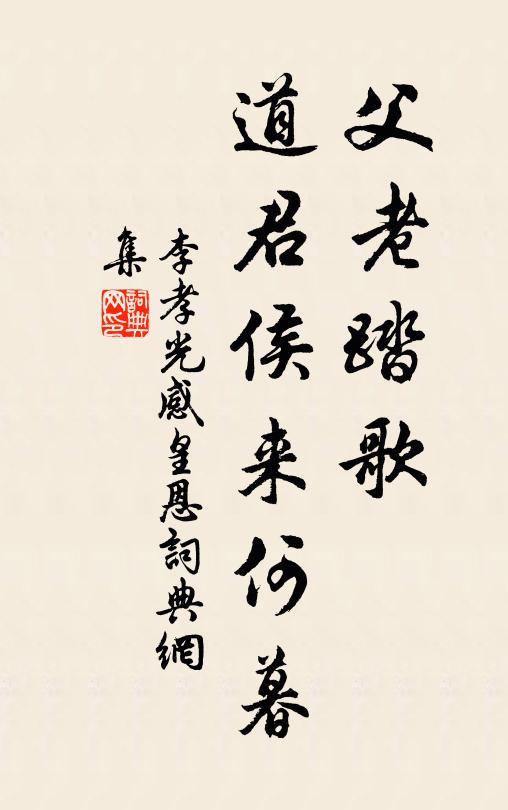 父老踏歌
道君侯来何暮
李孝光感皇恩詞典網
集
詞典
网印